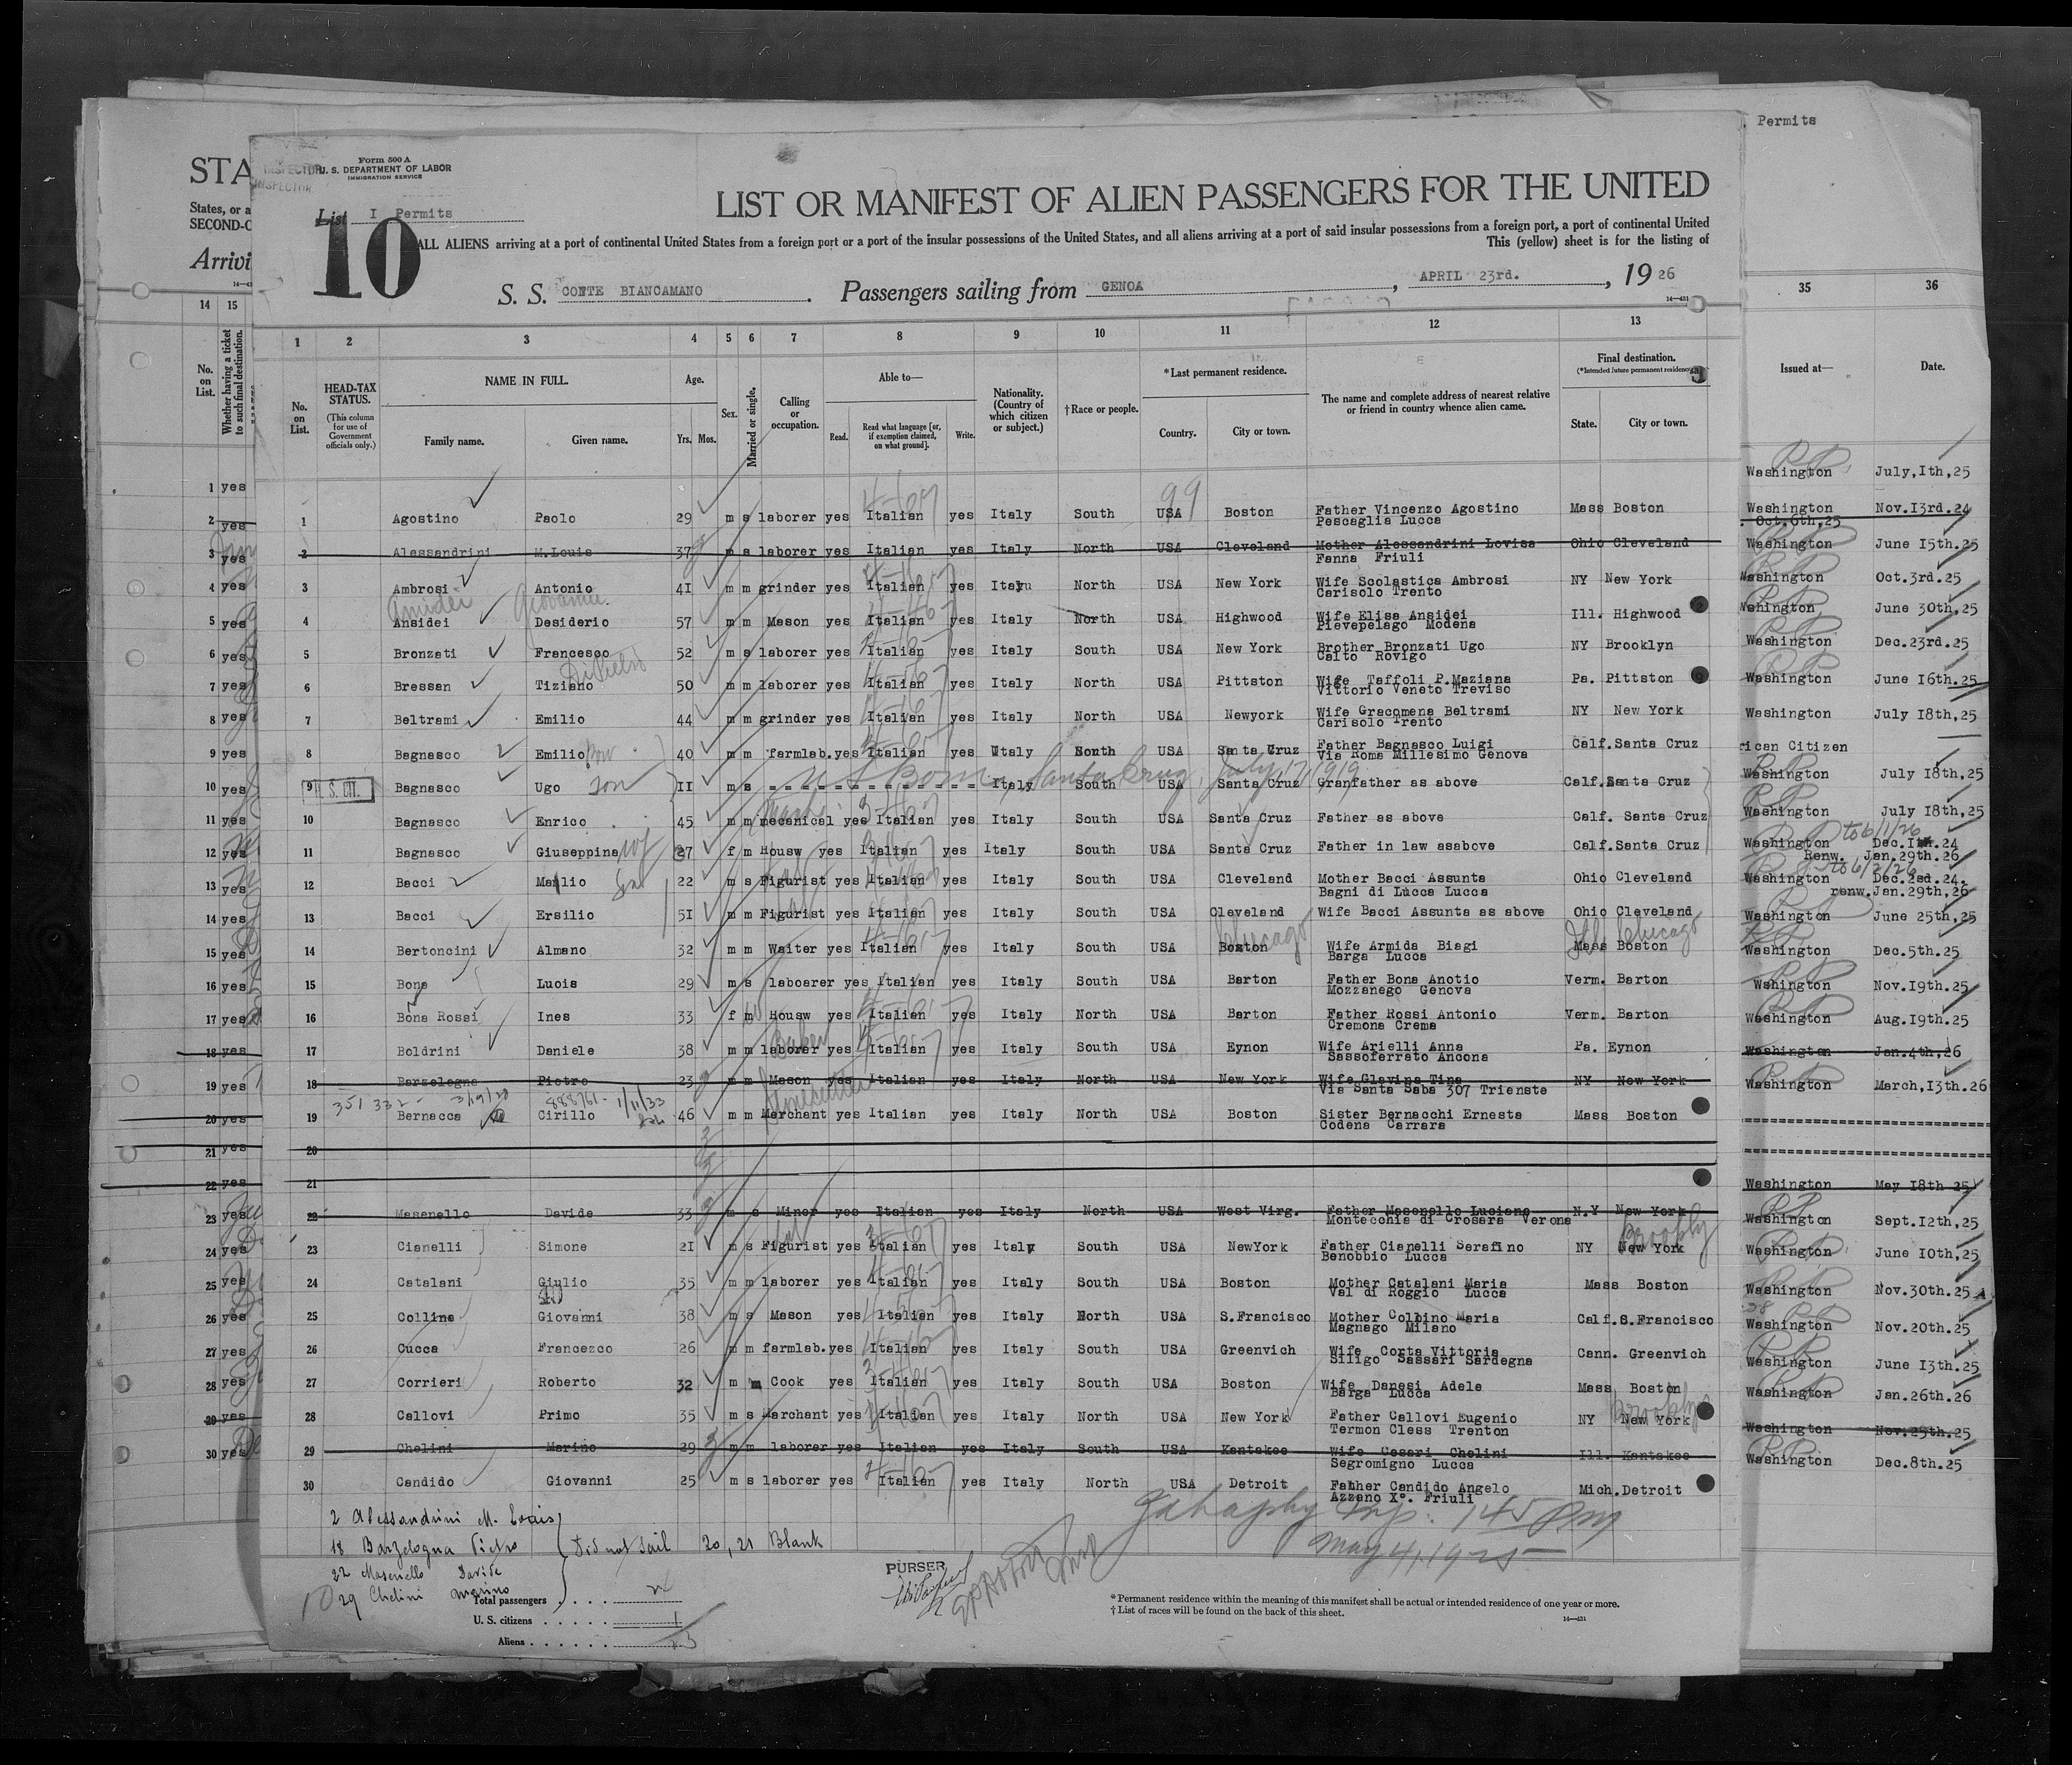 Permits
STA
States, or a
SECOND-C
Arrivi
INSPECTOR
INSPECTOR
Form 500 A
U. S. DEPARTMENT OF LABOR
IMMIGRATION SERVICE
List I Permits
10
LIST OR MANIFEST OF ALIEN PASSENGERS FOR THE UNITED
ALL ALIENS arriving at a port of continental United States from a foreign port or a port of the insular possessions of the United States, and all aliens arriving at a port of said insular possessions from a foreign port, a port of continental United
This (yellow) sheet is for the listing of
S. S. CONTE BIANCAMANO . Passengers sailing from GENOA , APRIL 23rd. , 19 26
14—431
14 15 1 2 3 4 5 6 7 8 9 10 11 12 13 35 36
No. on List. Whether having a ticket to such final destination.
No. on List. HEAD-TAX STATUS. (This column for use of Government officials only.) NAME IN FULL. Family name. Given name. Age. Yrs. Mos. Sex. Married or single. Calling or occupation. Able to— Read. Read what language [or, if exemption claimed, on what ground]. Write. Nationality. (Country of which citizen or subject.) †Race or people. *Last permanent residence. Country. City or town. The name and complete address of nearest relative or friend in country whence alien came. Final destination. (*Intended future permanent residence.) State. City or town.
Issued at— Date.
1 yes Washington July,Ith,25
99
2 yes 1 Agostino Paolo 29 m s laborer yes Italian yes Italy South USA Boston Father Vincenzo Agostino Mass Boston Washington Nov.I3rd.24
Pescaglia Lucca Oct.6th,25
3 yes 2 Alessandrini M.Louis 37 m s laborer yes Italian yes Italy North USA Cleveland Mother Alessandrini Lovisa Ohio Cleveland Washington June I5th.25
Fanna Friuli
4 yes 3 Ambrosi Antonio 4I m m grinder yes Italian yes Itayu North USA New York Wife Scolastica Ambrosi NY New York Washington Oct.3rd.25
Carisolo Trento
Amidei Giovanni
5 yes 4 Ansidei Desiderio 57 m m Mason yes Italian yes Italy North USA Highwood Wife Elisa Ansidei Ill. Highwood Washington June 30th,25
Pievepelago Modena
6 yes 5 Bronzati Francesco 52 m s laborer yes Italian yes Italy South USA New York Brother Bronzati Ugo NY Brooklyn Washington Dec.23rd.25
Calto Rovigo
7 yes 6 Bressan Tiziano 50 m m laborer yes Italian yes Italy North USA Pittston Wife Taffoli P.Maziana Pa. Pittston Washington June I6th.25
Vittorio Veneto Treviso
8 yes 7 Beltrami Emilio 44 m m grinder yes Italian yes Italy North USA Newyork Wife Gracomena Beltrami NY New York Washington July I8th,25
Carisolo Trento
9 yes 8 Bagnasco Emilio 40 m m farmlab.yes Italian yes Italy South USA Santa Cruz Father Bagnasco Luigi Calf.Santa Cruz rican Citizen
Via Roma Millesimo Genova
US Born Santa Cruz, July 17 1919
10 yes 9 U. S. CIT. Bagnasco Ugo son II m s Italy South USA Santa Cruz Granfather as above Calf.Santa Cruz Washington July I8th,25
11 yes 10 Bagnasco Enrico 45 m m mecanical yes Italian yes Italy South USA Santa Cruz Father as above Calf. Santa Cruz Washington July I8th,25
to 6/1/26
12 yes 11 Bagnasco Giuseppina wf 27 f m Housw yes Italian yes Italy South USA Santa Cruz Father in law asabove Calf.Santa Cruz Washington Dec.Ith.24
Renw. Jan.29th.26
to 6/2/26
13 yes 12 Bacci Manlio son 22 m s Figurist yes Italian yes Italy South USA Cleveland Mother Bacci Assunta Ohio Cleveland Washington Dec.2sd.24.
Bagni di Lucca Lucca renw.Jan.29th,26
14 yes 13 Bacci Ersilio 5I m m Figurist yes Italian yes Italy South USA Cleveland Wife Bacci Assunta as above Ohio Cleveland Washington June 25th,25
Chicago Ill Chicago
15 yes 14 Bertoncini Almano 32 m m Waiter yes Italian yes Italy South USA Boston Wife Armida Biagi Mass Boston Washington Dec.5th.25
Barga Lucca
16 yes 15 Bona Luois 29 m s laboarer yes Italian yes Italy South USA Barton Father Bona Anotio Verm. Barton Washington Nov.I9th.25
Mozzanego Genova
17 yes 16 Bona Rossi Ines 33 f m Housw yes Italian yes Italy North USA Barton Father Rossi Antonio Verm. Barton Washington Aug.I9th.25
Cremona Crema
Baker
18 yes 17 Boldrini Daniele 38 m m laborer yes Italian yes Italy South USA Eynon Wife Arielli Anna Pa. Eynon Washington Jan.4th,26
Sassoferrato Ancona
19 yes 18 Barzelogna Pietro 23 m m Mason yes Italian yes Italy North USA New York Wife Glavina Tina NY New York Washington March,I3th.26
Via Santa Saba 307 Trienste
351 332 - 3/19/28 888761 - 1/11/33
20 yes 19 Bernacca Cirillo 46 m m Merchant yes Italian yes Italy North USA Boston Sister Bernacchi Ernesta Mass Boston
Codena Carrara
21 yes 20
22 yes 21 Washington May I8th 25
23 yes 22 Masenello Davide 33 m s Miner yes Italian yes Italy North USA West Virg. Father Masenello Luciano N.Y New York Washington Sept.I2th,25
Montecchia di Crosara Verona
Brooklyn
24 yes 23 Cianelli Simone 2I m s Figurist yes Italian yes Italy South USA NewYork Father Cianelli Serafino NY New York Washington June I0th,25
Benobbio Lucca
25 yes 24 Catalani Giulio 35 m m laborer yes Italian yes Italy South USA Boston Mother Catalani Maria Mass Boston Washington Nov.30th.25
Val di Roggio Lucca
10
26 yes 25 Collina Giovanni 38 m s Mason yes Italian yes Italy North USA S.Francisco Mother Colbino Maria Calf.S.Francisco Washington Nov.20th.25
Magnago Milano
27 yes 26 Cucca Francezco 26 m m farmlab.yes Italian yes Italy South USA Greenvich Wife Corta Vittoria Cann. Greenvich Washington June I3th.25
Siligo Sassari Sardegna
28 yes 27 Corrieri Roberto 32 m m Cook yes Italian yes Italy South USA Boston Wife Danesi Adele Mass Boston Washington Jan.26th.26
Barga Lucca
Brooklyn
29 yes 28 Callovi Primo 35 m s Merchant yes Italian yes Italy North USA New York Father Callovi Eugenio NY New York Washington Nov.25th.25
Termon Cless Trenton
30 yes 29 Chelini Marino 29 m m laborer yes Italian yes Italy South USA Kantakee Wife Cesari Chelini Ill. Kantakee Washington Dec.8th.25
Segromigno Lucca
30 Candido Giovanni 25 m s laborer yes Italian yes Italy North USA Detroit Father Candido Angelo Mich.Detroit
Azzano X°. Friuli
2 Alessandrini M. Louis
18 Barzelogna Pietro Did not sail 20, 21 Blank
22 Masenello Davide
29 Chelini Marino
145 Pm
May 4, 1925
PURSER
Total passengers
U. S. citizens 1
Aliens
*Permanent residence within the meaning of this manifest shall be actual or intended residence of one year or more.
†List of races will be found on the back of this sheet.
14—431